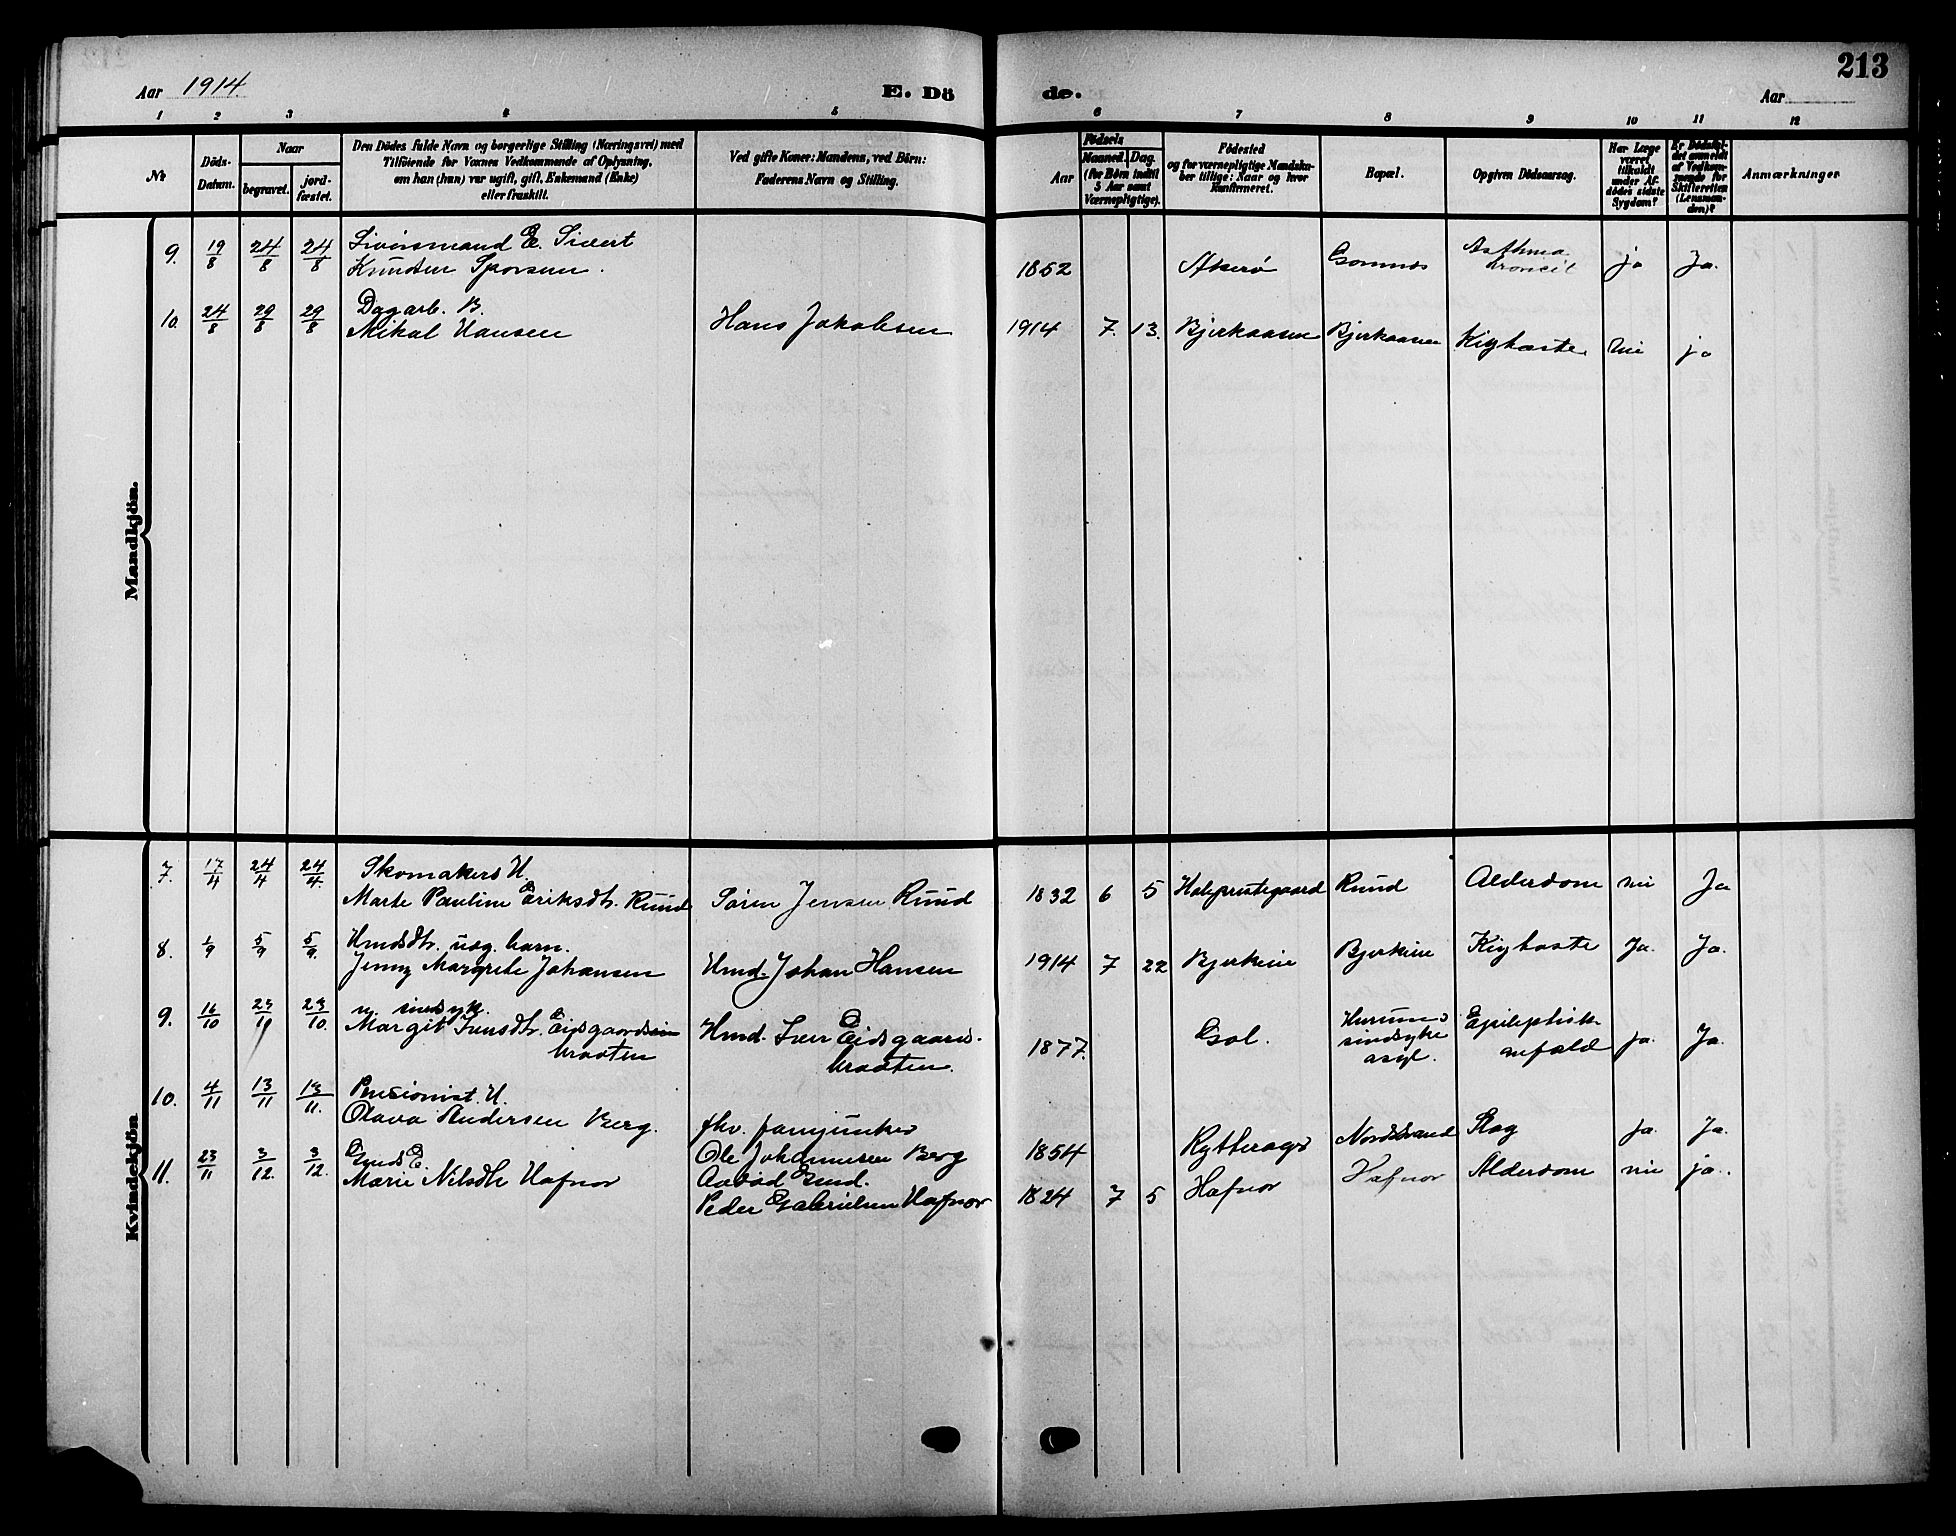 213
Aar 1914
E. Dö
de.
Aar
1 2 3 4 5 6 7 8 9 10 11 12
No
Döds-
Datum.
Naar
begravet.
jord-
fæstet.
Den Dödes fulde Navn og borgerlige Stilling (Næringsvei) med
Tilföiende for Voxnes Vedkommende af Oplysning,
om han (hun) var ugift, gift, Enkemand (Enke)
eller fraskilt.
Ved gifte Koner: Mandens, ved Börn:
Faderens Navn og Stilling.
Aar
Födsels
Maaned. Dag.
(for Börn indtil
5 Aar samt
Værnepligtige).
Födested
og for værnepligtige Mandska-
ber tillige: Naar og hvor
konfirmeret.
Bopæl.
Opgiven Dödsaarsag.
Har Læge
været
tilkaldt
under Af-
dödes sidste
Sygdom?
Er Dödsfal-
det anmeldt
af Vedkom-
mende for
Skifteretten
(Lensman-
den)?
Anmærkninger
Mandkjön.
9. 19/8 24/8 24/8 E. Sivert
Knudsen 1852 Akerø Asthma ja Ja.
10. 24/8 29/8 29/8 Dagarb. B.
Mikal Hansen Hans Jakobsen 1914 7. 13. Bjerkaasen Bjerkaasen Kighoste nei ja
Kvindekjön
7. 17/4 24/4 24/4 Skomakers U.
Marte Pauline Eriksdtr. Ruud Søren Jensen Ruud 1832 6 5 Ruud Alderdom nei Ja
8. 1/9 5/9 5/9. Hmdsdtr. barn.
Jenny Margrete Johansen Hmd. Johan Hansen 1914 7 22 Bjerkeie Bjerkeie Kighoste Ja. Ja.
9. 16/10 23/10 23/10. sindsyk.
Margit Iversdtr. Eidsgaards
braaten Hmd. Iver Eidsgaards-
braaten. 1877. Gol. Hurums
sindsyke
asyl. Epileptisk
anfald ja. Ja.
10. 4/11 13/11 13/11. Pensionist. U.
Olava Andersen Berg. fhv. fanejunker
Ole Johannesen Berg 1854 Rytterager Nordstrand Slag ja. Ja.
11. 23/11 3/12. 3/12. Gmds E.
Marie Nilsdtr Hafnor Gmd.
Peder Gabrielsen Hafnor 1824 7 5 Hafnor Hafnor Alderdom nei ja.